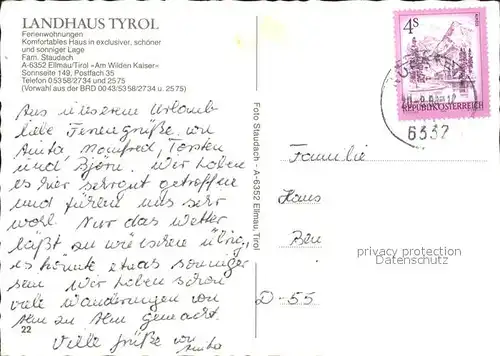 LANDHAUS TYROL
Ferienwohnungen
Komfortables Haus in exclusiver, schöner
und sonniger Lage
Fam. Staudach
A-6352 Ellmau/Tirol »Am Wilden Kaiser«
Sonnseite 149, Postfach 35
Telefon 05358/2734 und 2575
(Vorwahl aus der BRD 0043/5358/2734 u. 2575)
Aus unserem Urlaub
liebe Feriengrüße von
Anita, Manfred, Torsten
und Björn. Wir haben
es hier sehr gut getroffen
und fühlen uns sehr
wohl. Nur das Wetter
läßt zu wünschen übrig,
es könnte etwas sonniger
sein. Wir haben schon
viele Wanderungen von
Alm zu Alm gemacht.
Viele Grüße von
Anita
22
Foto Staudach - A-6352 Ellmau, Tirol
4S
REPUBLIK ÖSTERREICH
6352
Familie
Hans
D-55
privacy protection
Datenschutz